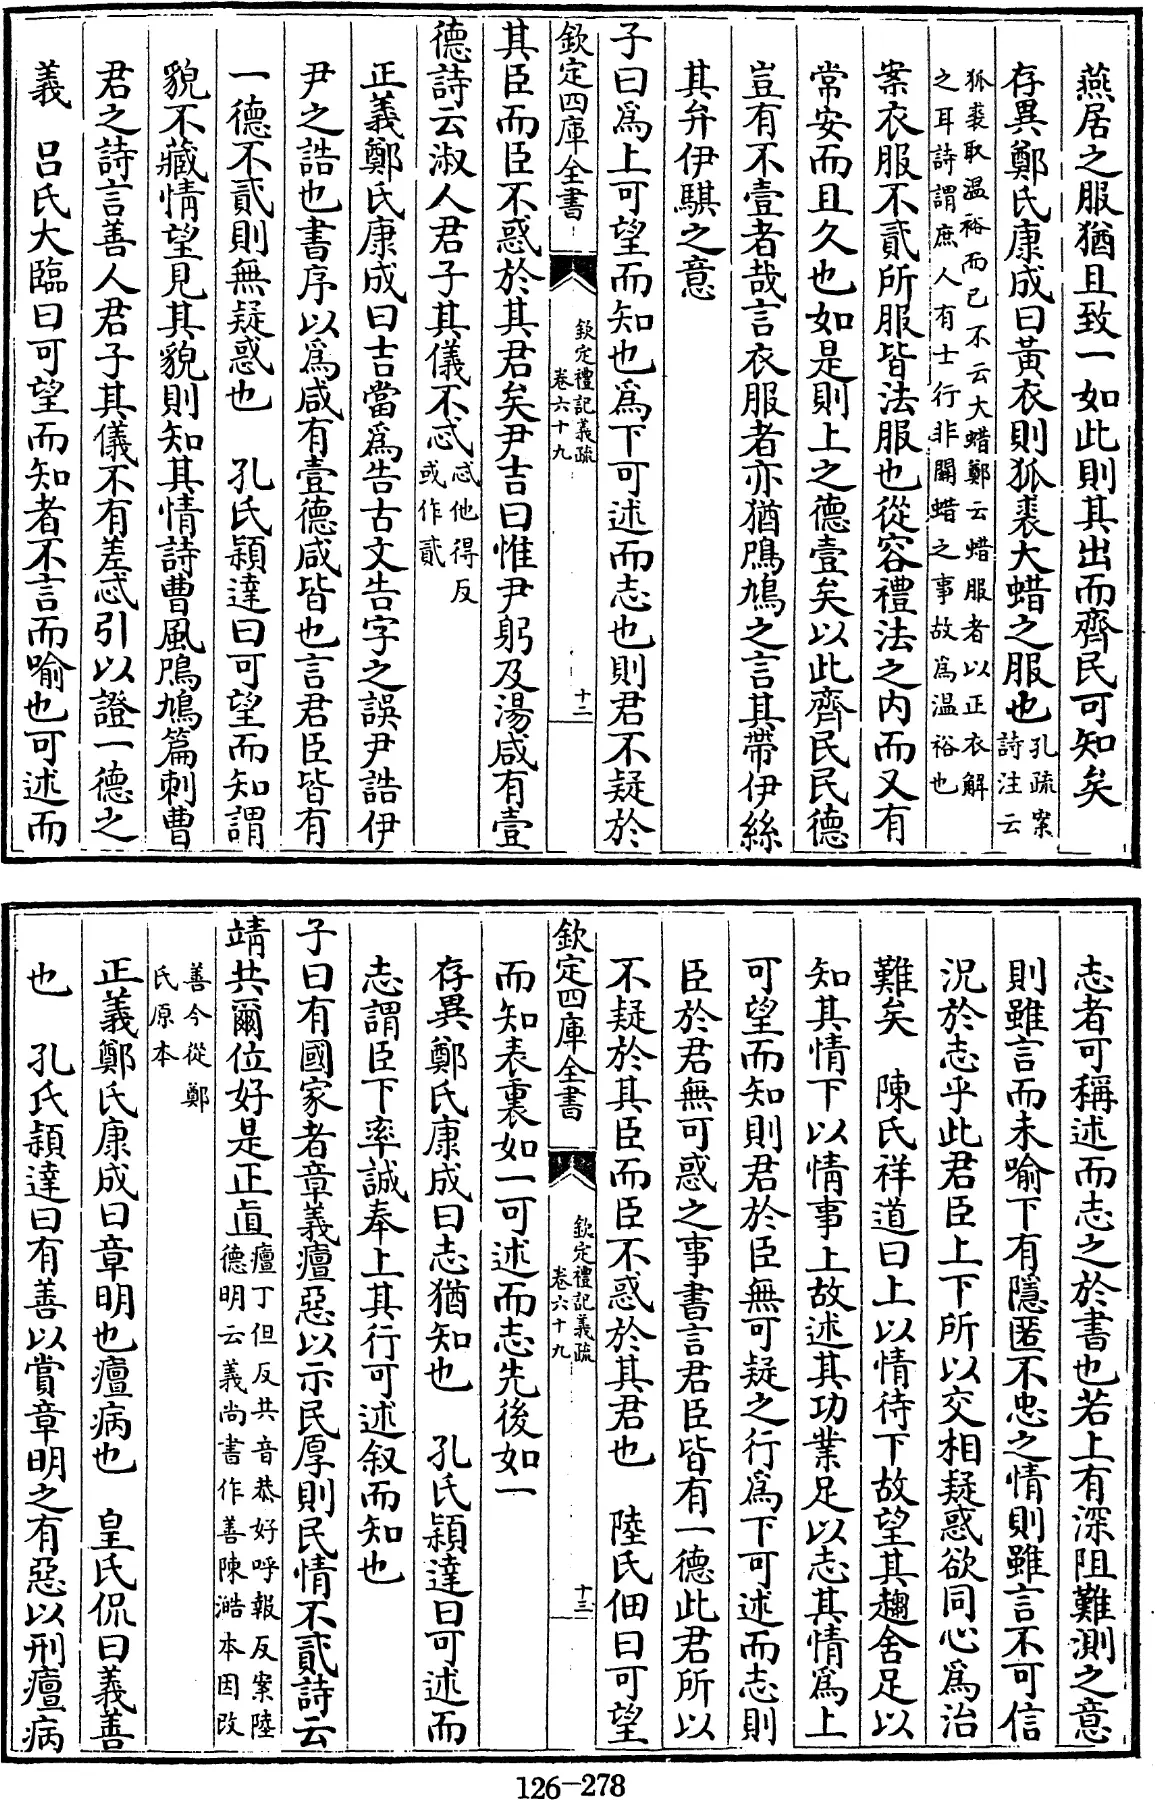 燕居之服猶且致一如此則其出而齊民可知矣
存異鄭氏康成曰黃衣則狐裘大蜡之服也孔疏案詩注云
狐裘取温裕而已不云大蜡鄭云蜡服者以正衣解
之耳詩謂庶人有士行非關蜡之事故為温裕也
案衣服不貳所服皆法服也從容禮法之内而又有
常安而且久也如是則上之德壹矣以此齊民民德
豈有不壹者哉言衣服者亦猶鳲鳩之言其帶伊絲
其弁伊騏之意
子曰為上可望而知也為下可述而志也則君不疑於
欽定四庫全書
欽定禮記義疏
卷六十九
十二
其臣而臣不惑於其君矣尹吉曰惟尹躬及湯咸有壹
德詩云淑人君子其儀不忒忒他得反或作貳
正義鄭氏康成曰吉當為告古文告字之誤尹誥伊
尹之誥也書序以為咸有壹德咸皆也言君臣皆有
一德不貳則無疑惑也　孔氏穎達曰可望而知謂
貌不藏情望見其貌則知其情詩曹風鳲鳩篇刺曹
君之詩言善人君子其儀不有差忒引以證一德之
義　呂氏大臨曰可望而知者不言而喻也可述而
志者可稱述而志之於書也若上有深阻難測之意
則雖言而未喻下有隱匿不忠之情則雖言不可信
況於志乎此君臣上下所以交相疑惑欲同心為治
難矣　陳氏祥道曰上以情待下故望其趨舍足以
知其情下以情事上故述其功業足以志其情為上
可望而知則君於臣無可疑之行為下可述而志則
臣於君無可惑之事書言君臣皆有一德此君所以
不疑於其臣而臣不惑於其君也　陸氏佃曰可望
欽定四庫全書
欽定禮記義疏
卷六十九
十三
而知表裏如一可述而志先後如一
存異鄭氏康成曰志猶知也　孔氏穎達曰可述而
志謂臣下率誠奉上其行可述叙而知也
子曰有國家者章義癉惡以示民厚則民情不貳詩云
靖共爾位好是正直癉丁但反共音恭好呼報反案陸德明云義尚書作善陳澔本因改
善今從鄭
氏原本
正義鄭氏康成曰章明也癉病也　皇氏侃曰義善
也　孔氏穎達曰有善以賞章明之有惡以刑癉病
126-278